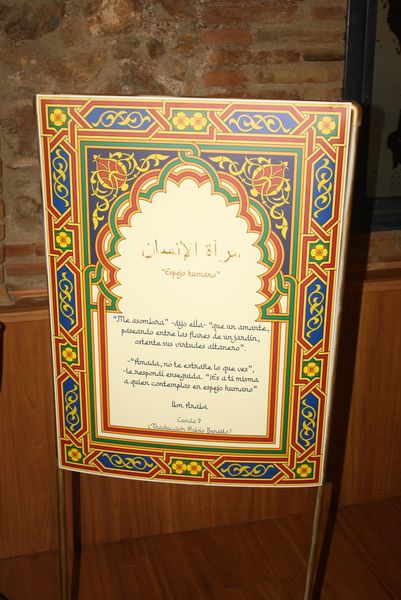 مرآة الإنسان
“Espejo humano”
“Me asombra” -dijo ella- “que un amante,
paseando entre las flores de un jardín,
ostente sus virtudes altanero”.
-“Amada, no te extrañe lo que ves”,
-le respondí enseguida. “¡Es a ti misma
a quien contemplas en espejo humano”
Ibn Arabi
Casida 9
(Traducción Pablo Beneito)